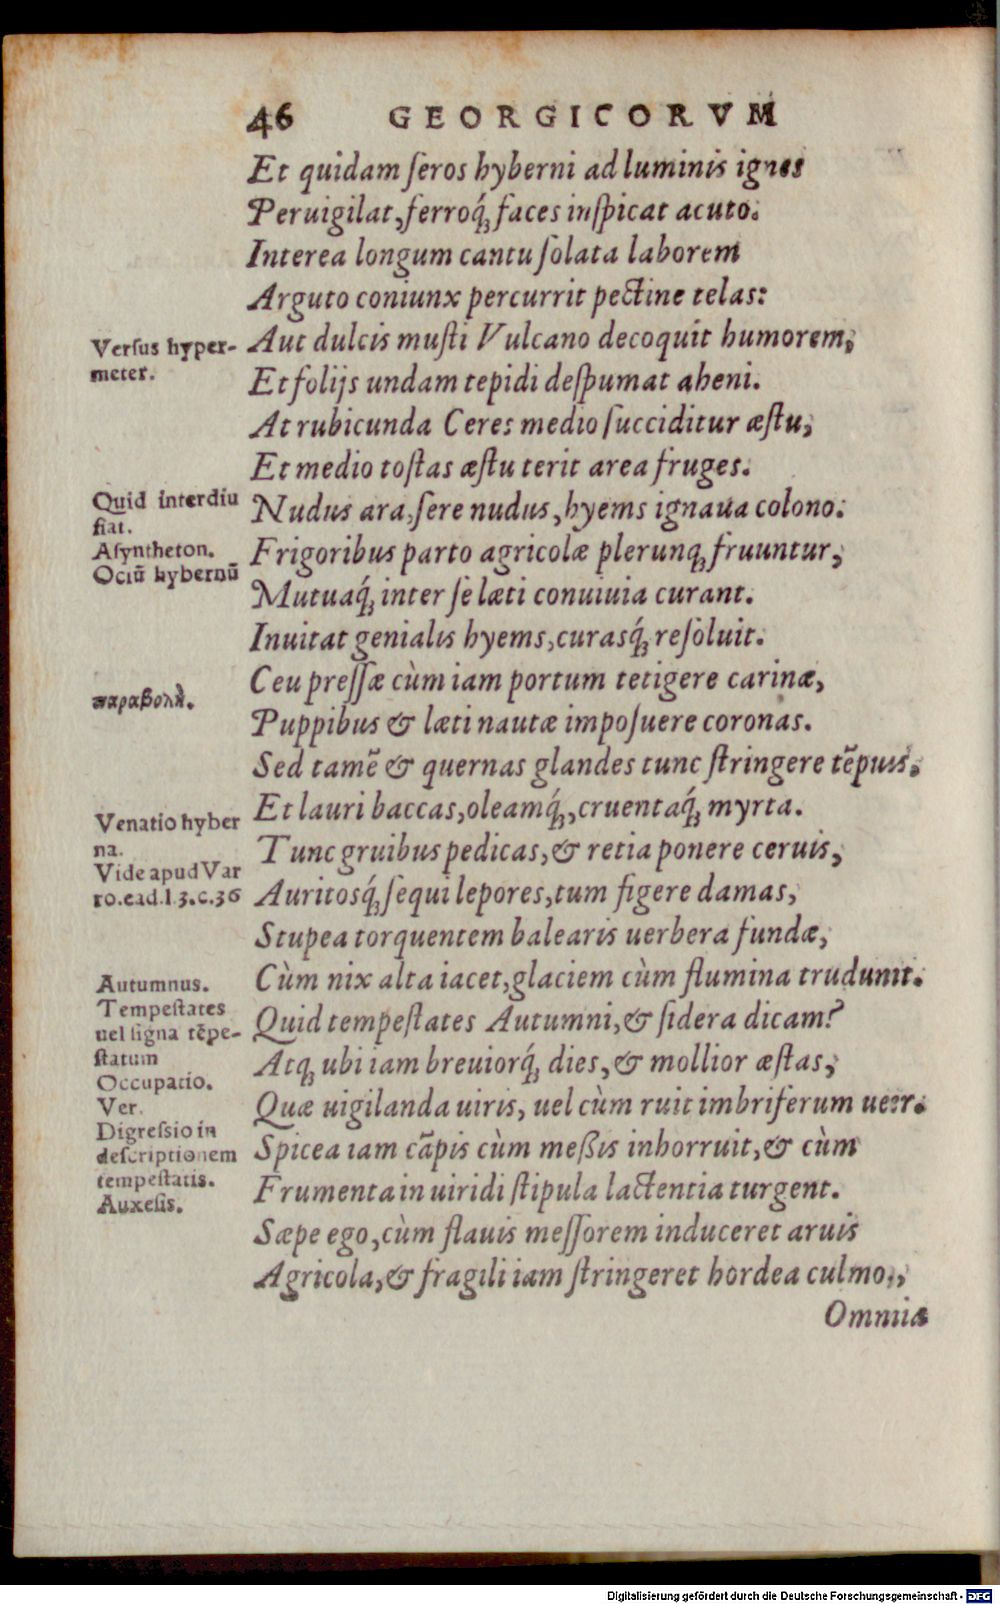 46 GEORGICORVM
Et quidam ſeros hyberni ad luminis ignes
Peruigilat, ferroq́ꝫ faces inſpicat acuto.
Interea longum cantu ſolata laborem
Arguto coniunx percurrit pectine telas:
Versus hyper-
meter.
Aut dulcis muſti Vulcano decoquit humorem,
Et folijs undam tepidi deſpumat aheni.
At rubicunda Ceres medio ſucciditur æſtu,
Et medio toſtas æſtu terit area fruges.
Quid interdiu
fiat.
Aſyntheton.
Ociũ hybernũ
Nudus ara, ſere nudus, hyems ignaua colono.
Frigoribus parto agricolæ plerunqꝫ fruuntur,
Mutuaq́ꝫ inter ſe læti conuiuia curant.
Inuitat genialis hyems, curasq́ꝫ reſoluit.
παραβολὴ.
Ceu preſſæ cùm iam portum tetigere carinæ,
Puppibus & læti nautæ impoſuere coronas.
Sed tamẽ & quernas glandes tunc ſtringere tẽpus,
Et lauri baccas, oleamq́ꝫ, cruentaq́ꝫ myrta.
Venatio hyber
na.
Vide apud Var
ro.ead.l 3.c.36
Tunc gruibus pedicas, & retia ponere ceruis,
Auritosq́ꝫ ſequi lepores, tum figere damas,
Stupea torquentem balearis uerbera fundæ,
Cùm nix alta iacet, glaciem cùm flumina trudunt.
Autumnus.
Tempeſtates
uel ſigna tẽpe-
ſtatum
Occupatio.
Ver.
Digreſsio in
deſcriptionem
tempeſtatis.
Auxeſis.
Quid tempeſtates Autumni, & ſidera dicam?
Atqꝫ ubi iam breuiorq́ꝫ dies, & mollior æſtas,
Quæ uigilanda uiris, uel cùm ruit imbriferum uer.
Spicea iam cãpis cùm meßis inhorruit, & cùm
Frumenta in uiridi ſtipula lactentia turgent.
Sæpe ego, cùm flauis meſſorem induceret aruis
Agricola, & fragili iam ſtringeret hordea culmo,
Omnia
Digitalisierung gefördert durch die Deutsche Forschungsgemeinschaft - DFG